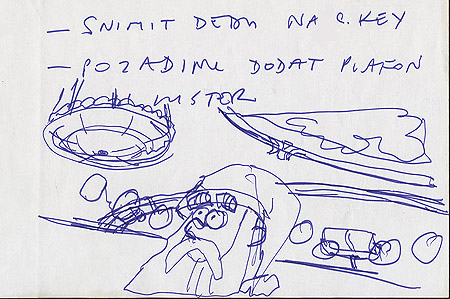 — SNIMIT DEDU NA C. KEY
— POZADINU DODAT PLAFON
LUSTER